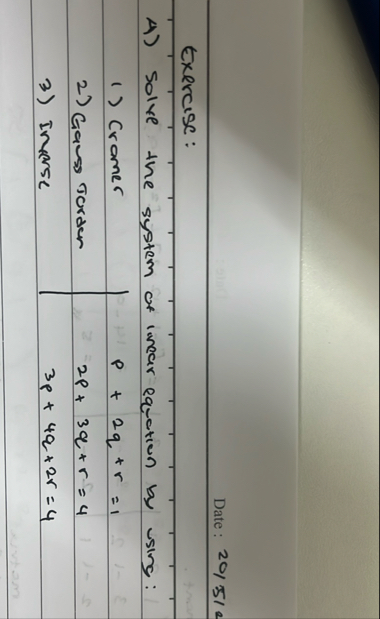 Date: 20/5/2
Exercise:
A) Solve the system of linear equation by using:
1) Cramer p + 2q + r = 1
2) Gauss Jordan 2p + 3q + r = 4
3) Inverse 3p + 4q + 2r = 4